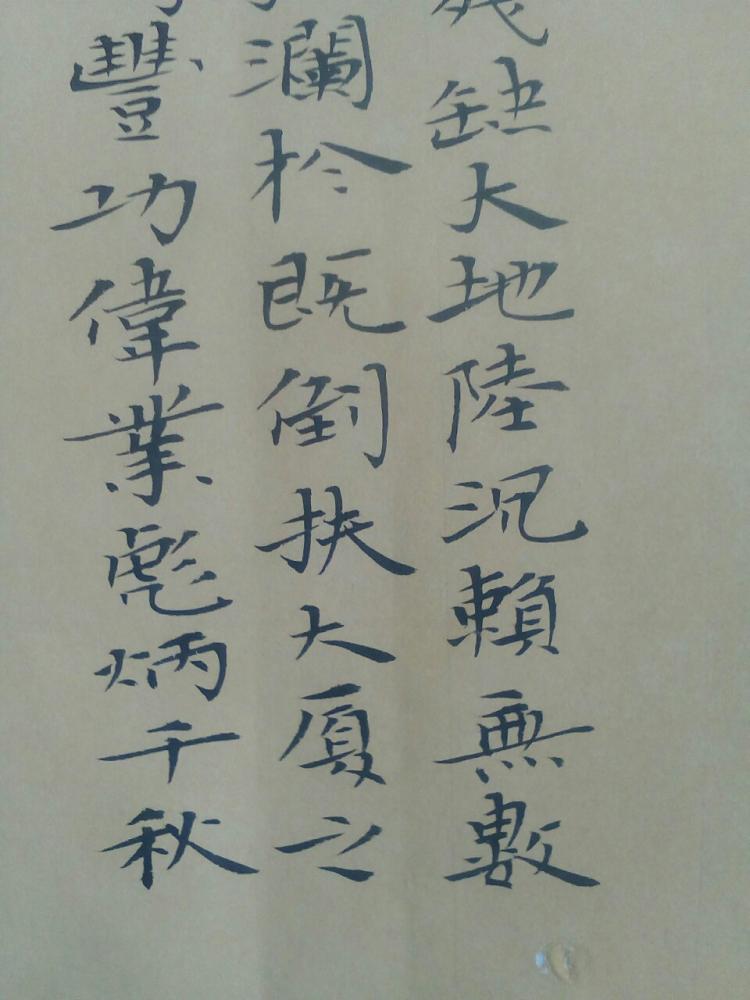 缺大地陸沉賴無數
瀾於既倒扶大厦之
豐功偉業彪炳千秋